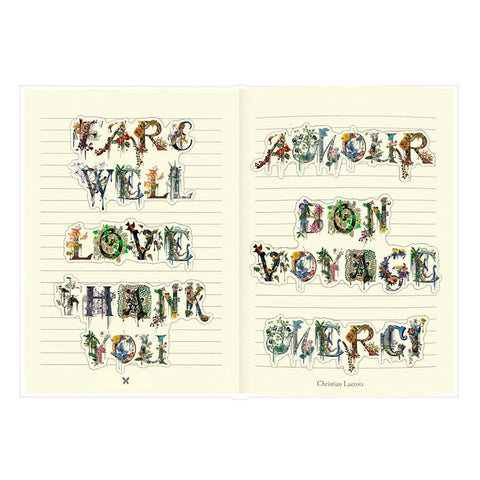 FARE
WELL
LOVE
THANK
YOU
AMOUR
BON
VOYAGE
MERCI
Christian Lacroix